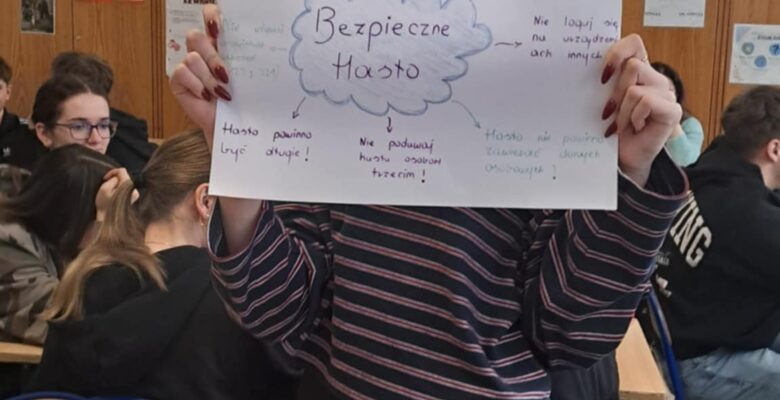 Bezpieczne
Hasło
Nie loguj się
na urządzeni
ach innych!
Hasło powinno
być długie!
Nie podawaj
hasła osobom
trzecim!
Hasło nie powinno
zawierać danych
osobowych!
ING